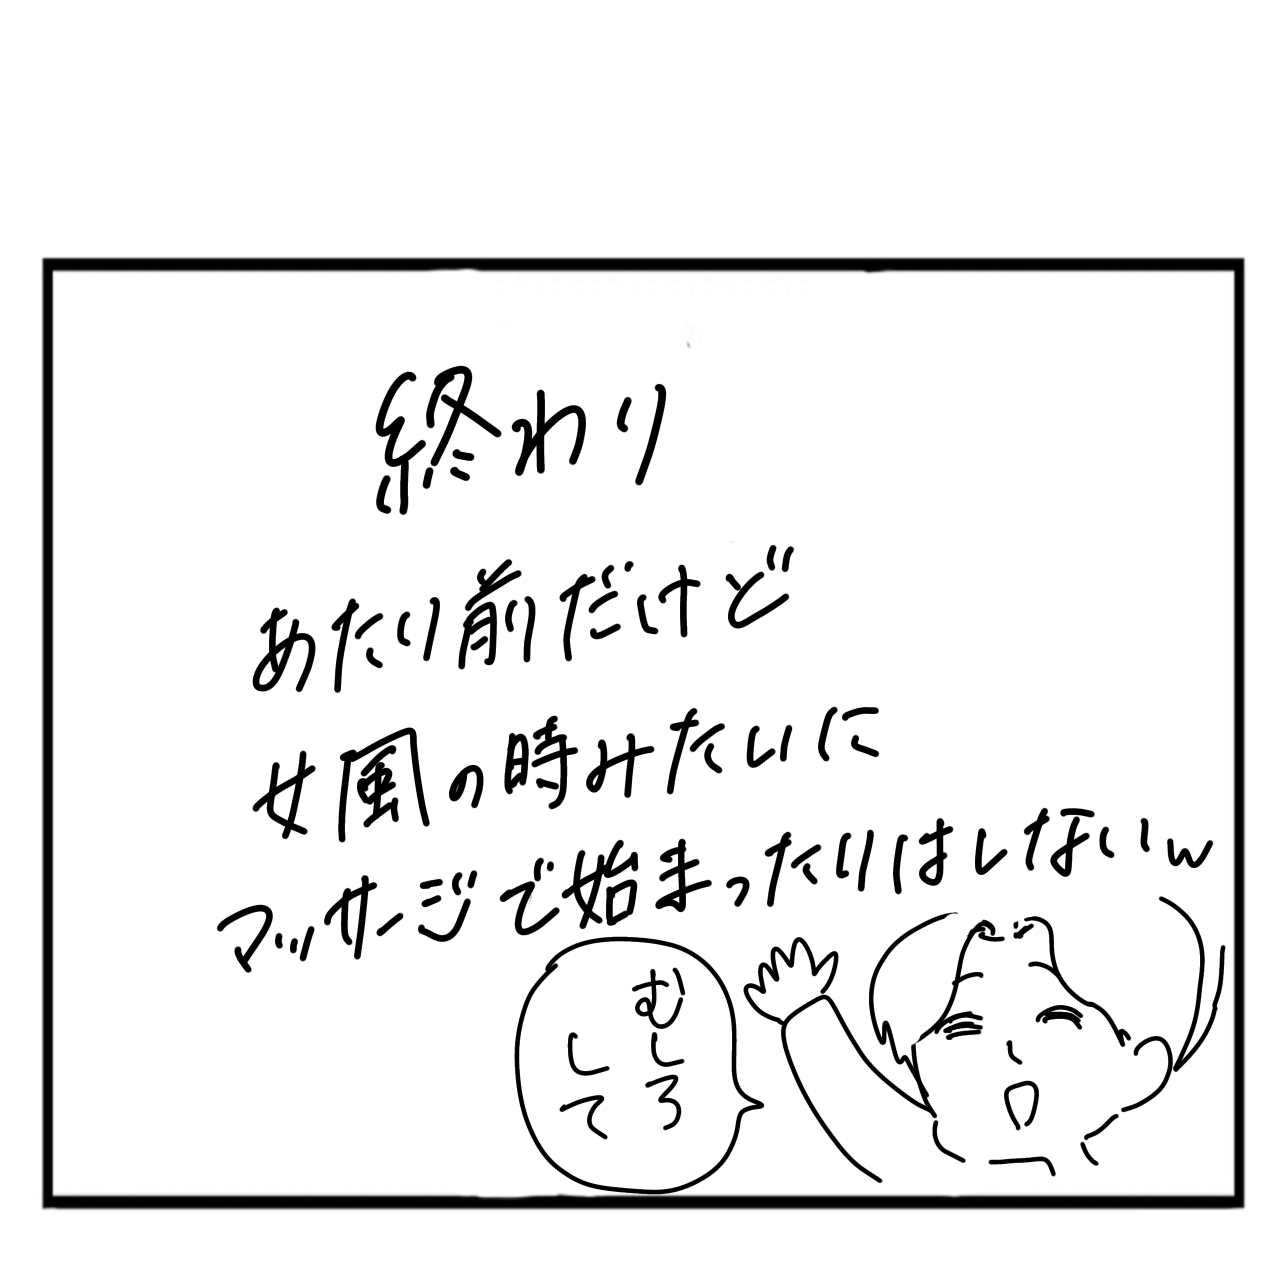 終わり
あたり前だけど
女風の時みたいに
マッサージで始まったりはしないw
むしろ
して